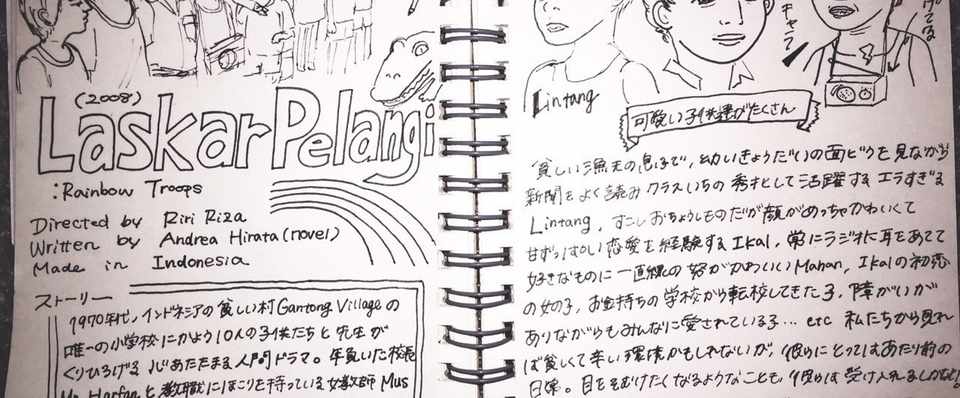 (2008)
Laskar Pelangi
:Rainbow Troops
Directed by Riri Riza
Written by Andrea Hirata (novel)
Made in Indonesia
ストーリー
1970年代、インドネシアの貧しい村Gantong Villageの
唯一の小学校にかよう10人の子供たちと先生が
くりひろげる 心あたたまる人間ドラマ。年負いた校長
Mr. Harfanと教職にほこりを持っている女教師Mus
Lintang
可愛い子供達がたくさん
貧しい漁夫の息子で、幼いきょうだいの面どうを見ながら
新聞をよく読みクラスいちの秀才として活躍するエラすぎる
Lintang, すこしおちょうしものだが顔がめっちゃかわいくて
甘ずっぱい恋愛を経験するIkal, 常にラジオに耳をあてて
好きなものに一直線の姿がかわいいMahar, Ikalの初恋
の女の子, お金持ちの学校から転校してきた子, 障がいが
ありながらもみんなに愛されている子... etc 私たちから見れ
ば貧しくて辛い環境かもしれないが、彼らにとってはあたり前の
日常。目をそむけたくなるようなことも、彼らは受け入れるしかない!